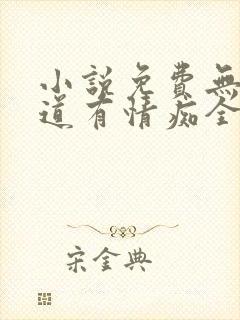 小说免費無
道有情痴全
宋金典